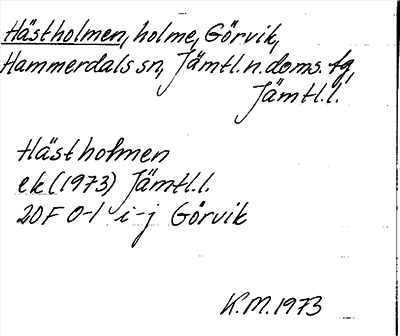 Hästholmen, holme, Görvik,
Hammerdals sn, Jämtl. n. doms. fg,
Jämtl. l.
Hästholmen
ek (1973) Jämtl. l.
20F 0-1 i-j Görvik
K.M. 1973